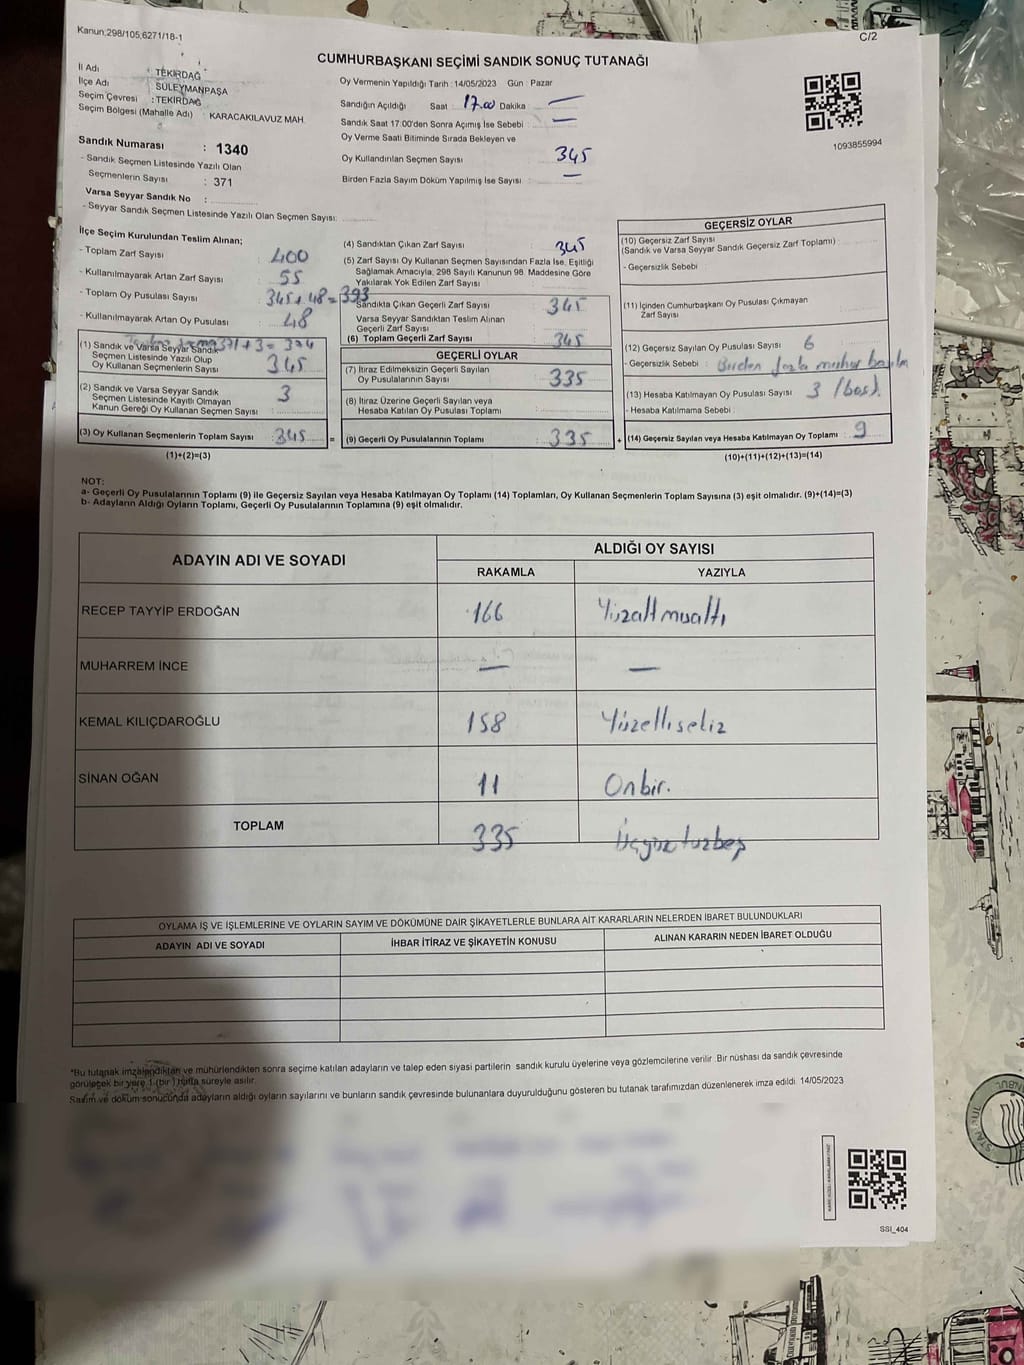 Kanun:298/105,6271/18-1
C/2
CUMHURBAŞKANI SEÇİMİ SANDIK SONUÇ TUTANAĞI
İl Adı : TEKİRDAĞ
İlçe Adı : SÜLEYMANPAŞA
Seçim Çevresi : TEKİRDAĞ
Seçim Bölgesi (Mahalle Adı) : KARACAKILAVUZ MAH.
Sandık Numarası : 1340
- Sandık Seçmen Listesinde Yazılı Olan
Seçmenlerin Sayısı : 371
Varsa Seyyar Sandık No :
- Seyyar Sandık Seçmen Listesinde Yazılı Olan Seçmen Sayısı:
Oy Vermenin Yapıldığı Tarih : 14/05/2023 Gün : Pazar
Sandığın Açıldığı Saat 17.00 Dakika —
Sandık Saat 17:00'den Sonra Açımış İse Sebebi : —
Oy Verme Saati Bitiminde Sırada Bekleyen ve
Oy Kullandırılan Seçmen Sayısı 345
Birden Fazla Sayım Döküm Yapılmış İse Sayısı : —
1093855994
İlçe Seçim Kurulundan Teslim Alınan;
- Toplam Zarf Sayısı : 400
- Kullanılmayarak Artan Zarf Sayısı : 55
- Toplam Oy Pusulası Sayısı : 345+48=393
- Kullanılmayarak Artan Oy Pusulası : 48
371+3=374
(1) Sandık ve Varsa Seyyar Sandık
Seçmen Listesinde Yazılı Olup
Oy Kullanan Seçmenlerin Sayısı : 345
(2) Sandık ve Varsa Seyyar Sandık
Seçmen Listesinde Kayıtlı Olmayan
Kanun Gereği Oy Kullanan Seçmen Sayısı : 3
(3) Oy Kullanan Seçmenlerin Toplam Sayısı : 345 =
(1)+(2)=(3)
(4) Sandıktan Çıkan Zarf Sayısı 345
(5) Zarf Sayısı Oy Kullanan Seçmen Sayısından Fazla İse, Eşitliği
Sağlamak Amacıyla, 298 Sayılı Kanunun 98. Maddesine Göre
Yakılarak Yok Edilen Zarf Sayısı :
Sandıkta Çıkan Geçerli Zarf Sayısı : 345
Varsa Seyyar Sandıktan Teslim Alınan
Geçerli Zarf Sayısı :
(6) Toplam Geçerli Zarf Sayısı : 345
GEÇERLİ OYLAR
(7) İtiraz Edilmeksizin Geçerli Sayılan
Oy Pusulalarının Sayısı : 335
(8) İtiraz Üzerine Geçerli Sayılan veya
Hesaba Katılan Oy Pusulası Toplamı :
(9) Geçerli Oy Pusulalarının Toplamı : 335 +
GEÇERSİZ OYLAR
(10) Geçersiz Zarf Sayısı
(Sandık ve Varsa Seyyar Sandık Geçersiz Zarf Toplamı) :
- Geçersizlik Sebebi :
(11) İçinden Cumhurbaşkanı Oy Pusulası Çıkmayan
Zarf Sayısı :
(12) Geçersiz Sayılan Oy Pusulası Sayısı : 6
- Geçersizlik Sebebi : Birden fazla mühür
(13) Hesaba Katılmayan Oy Pusulası Sayısı : 3 (boş)
- Hesaba Katılmama Sebebi :
(14) Geçersiz Sayılan veya Hesaba Katılmayan Oy Toplamı : 9
(10)+(11)+(12)+(13)=(14)
NOT:
a- Geçerli Oy Pusulalarının Toplamı (9) ile Geçersiz Sayılan veya Hesaba Katılmayan Oy Toplamı (14) Toplamları, Oy Kullanan Seçmenlerin Toplam Sayısına (3) eşit olmalıdır. (9)+(14)=(3)
b- Adayların Aldığı Oyların Toplamı, Geçerli Oy Pusulalarının Toplamına (9) eşit olmalıdır.
ADAYIN ADI VE SOYADI
ALDIĞI OY SAYISI
RAKAMLA YAZIYLA
RECEP TAYYİP ERDOĞAN 166 Yüzaltmışaltı
MUHARREM İNCE — —
KEMAL KILIÇDAROĞLU 158 Yüzellisekiz
SİNAN OĞAN 11 Onbir.
TOPLAM 335 Üçyüzotuzbeş
OYLAMA İŞ VE İŞLEMLERİNE VE OYLARIN SAYIM VE DÖKÜMÜNE DAİR ŞİKAYETLERLE BUNLARA AİT KARARLARIN NELERDEN İBARET BULUNDUKLARI
ADAYIN ADI VE SOYADI İHBAR İTİRAZ VE ŞİKAYETİN KONUSU ALINAN KARARIN NEDEN İBARET OLDUĞU
*Bu tutanak imzalandıktan ve mühürlendikten sonra seçime katılan adayların ve talep eden siyasi partilerin sandık kurulu üyelerine veya gözlemcilerine verilir. Bir nüshası da sandık çevresinde
görülecek bir yere 1 (bir) hafta süreyle asılır.
Sayım ve döküm sonucunda adayların aldığı oyların sayılarını ve bunların sandık çevresinde bulunanlara duyurulduğunu gösteren bu tutanak tarafımızdan düzenlenerek imza edildi. 14/05/2023
SSI_404